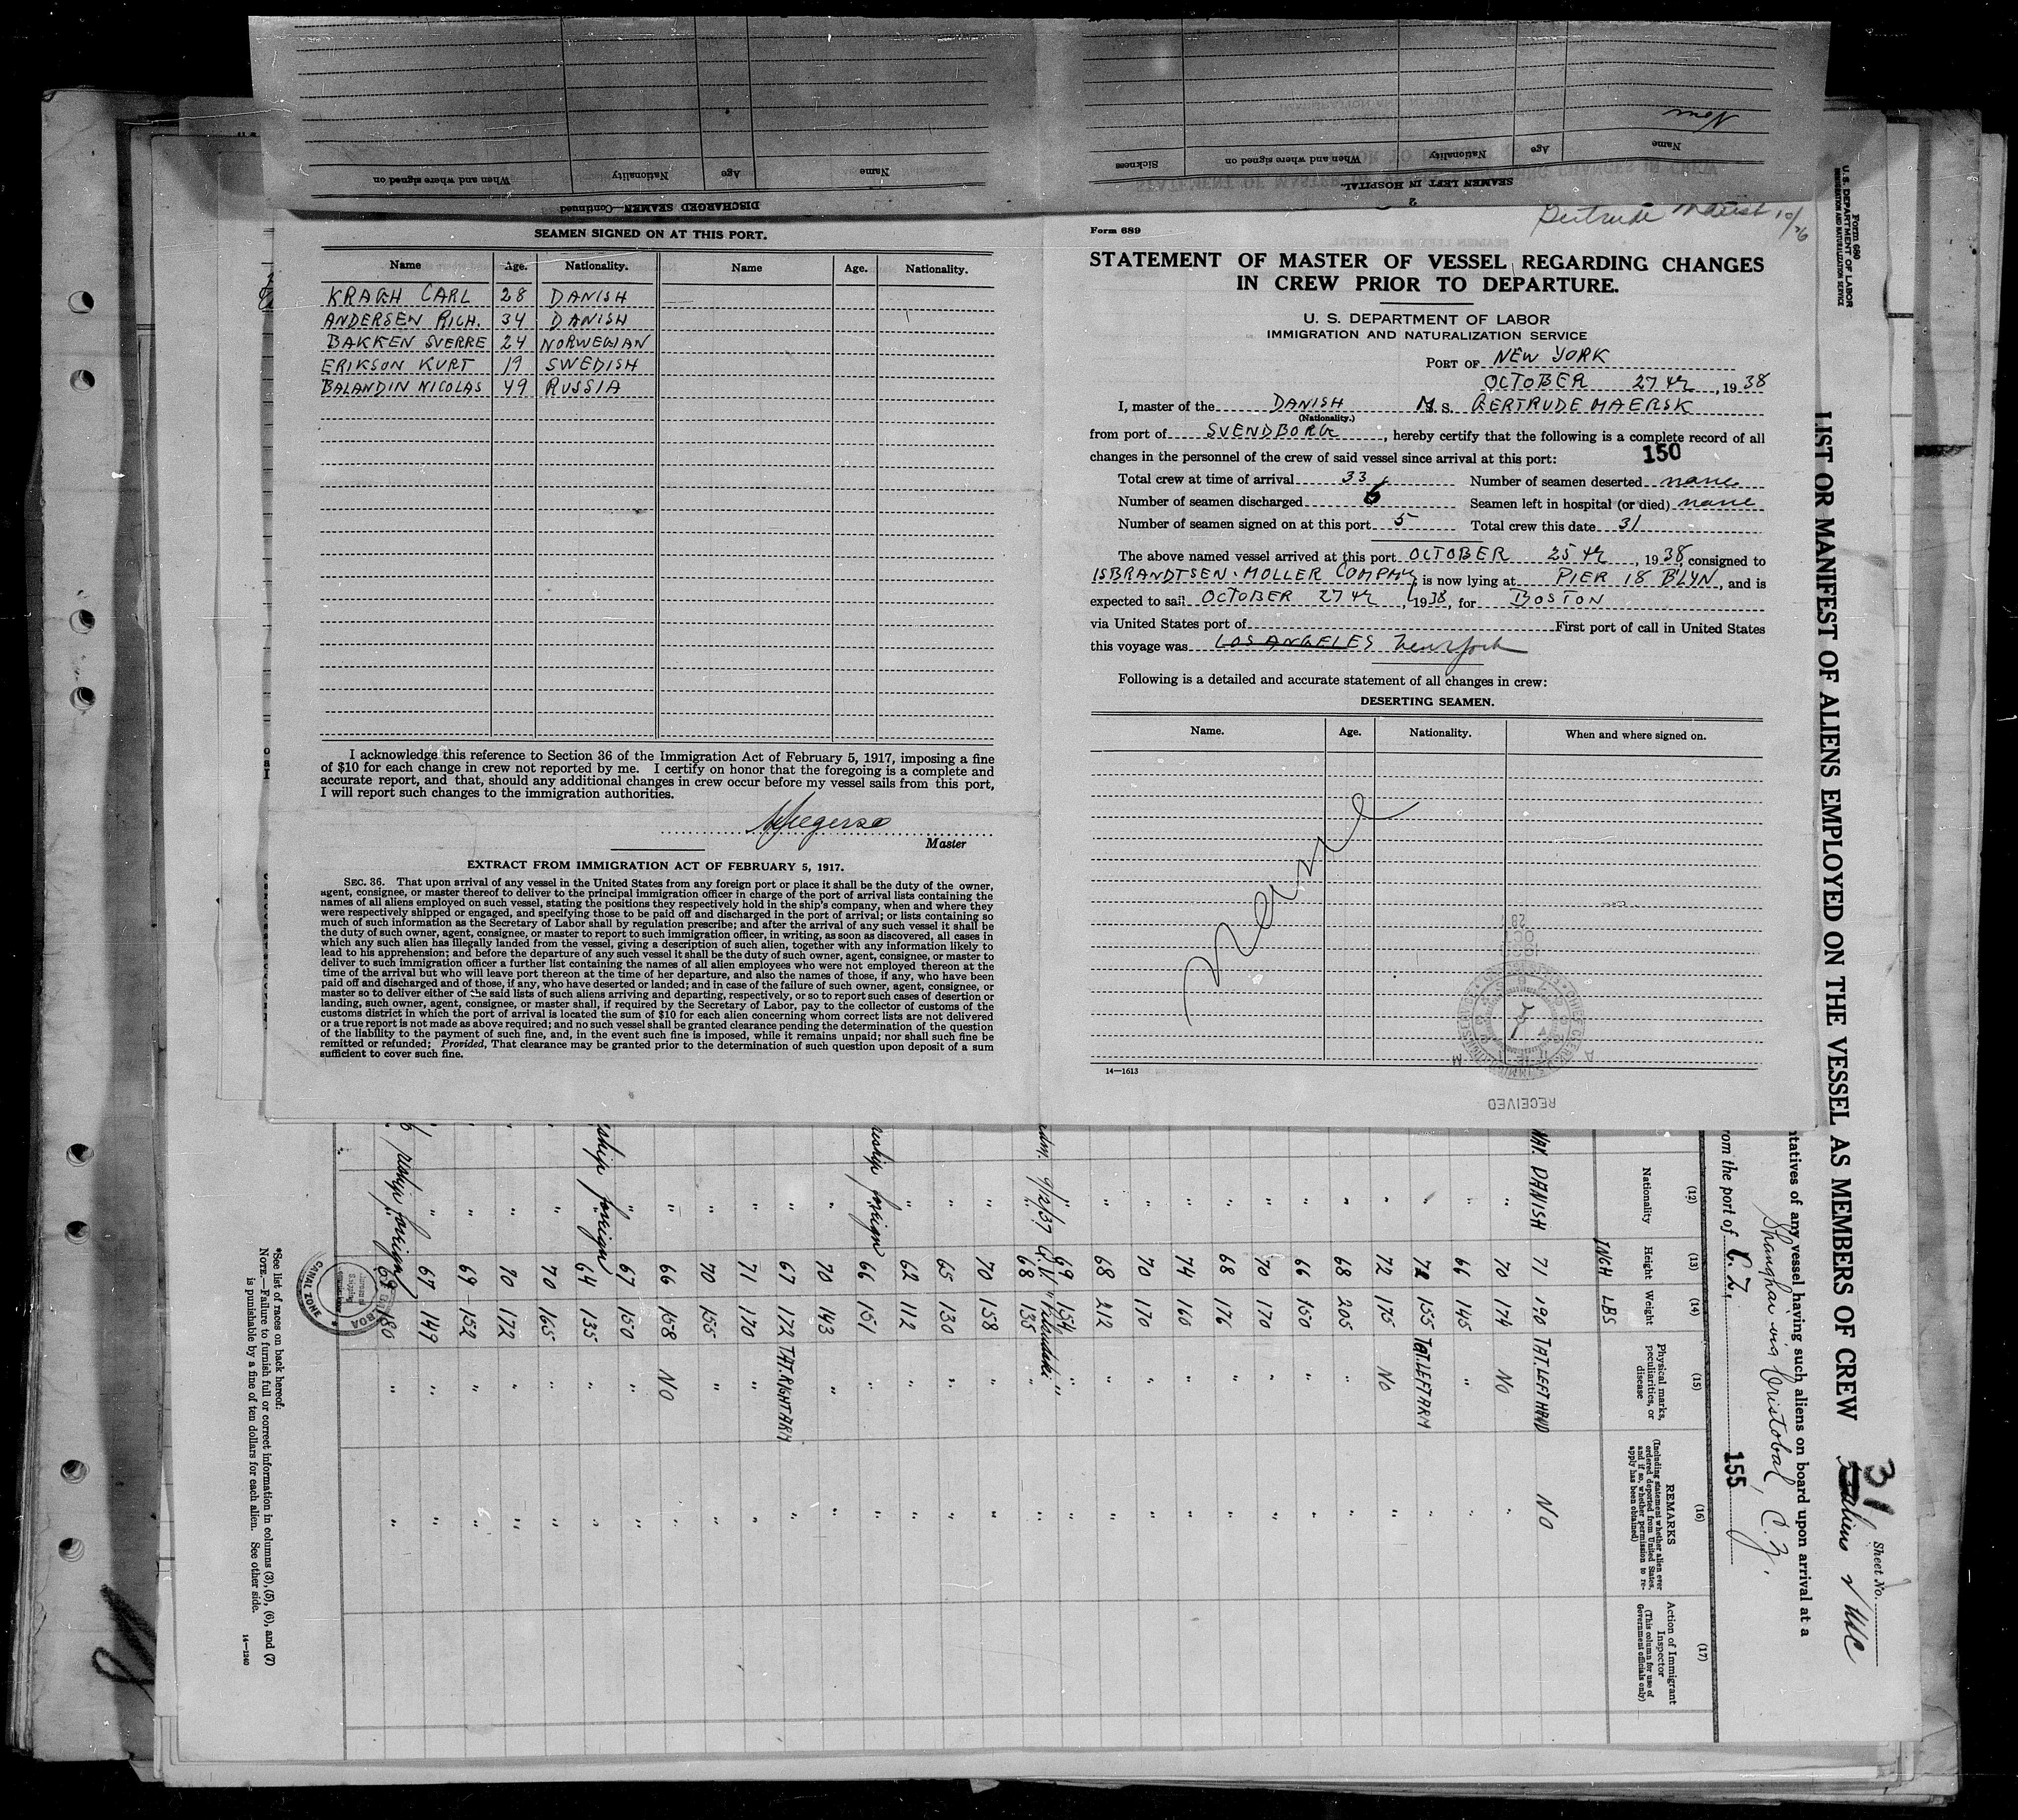 DISCHARGED SEAMEN—Continued
Name Age Nationality When and where signed on
2
SEAMEN LEFT IN HOSPITAL
Name Age Nationality When and where signed on Sickness
None
SEAMEN SIGNED ON AT THIS PORT.
Name Age. Nationality. Name Age. Nationality.
KRAGH CARL 28 DANISH
ANDERSEN RICH. 34 DANISH
BAKKEN SVERRE 24 NORWEGIAN
ERIKSON KURT 19 SWEDISH
BALANDIN NICOLAS 49 RUSSIA
I acknowledge this reference to Section 36 of the Immigration Act of February 5, 1917, imposing a fine
of $10 for each change in crew not reported by me. I certify on honor that the foregoing is a complete and
accurate report, and that, should any additional changes in crew occur before my vessel sails from this port,
I will report such changes to the immigration authorities.
Master
EXTRACT FROM IMMIGRATION ACT OF FEBRUARY 5, 1917.
SEC. 36. That upon arrival of any vessel in the United States from any foreign port or place it shall be the duty of the owner,
agent, consignee, or master thereof to deliver to the principal immigration officer in charge of the port of arrival lists containing the
names of all aliens employed on such vessel, stating the positions they respectively hold in the ship's company, when and where they
were respectively shipped or engaged, and specifying those to be paid off and discharged in the port of arrival; or lists containing so
much of such information as the Secretary of Labor shall by regulation prescribe; and after the arrival of any such vessel it shall be
the duty of such owner, agent, consignee, or master to report to such immigration officer, in writing, as soon as discovered, all cases in
which any such alien has illegally landed from the vessel, giving a description of such alien, together with any information likely to
lead to his apprehension; and before the departure of any such vessel it shall be the duty of such owner, agent, consignee, or master to
deliver to such immigration officer a further list containing the names of all alien employees who were not employed thereon at the
time of the arrival but who will leave port thereon at the time of her departure, and also the names of those, if any, who have been
paid off and discharged and of those, if any, who have deserted or landed; and in case of the failure of such owner, agent, consignee, or
master so to deliver either of the said lists of such aliens arriving and departing, respectively, or so to report such cases of desertion or
landing, such owner, agent, consignee, or master shall, if required by the Secretary of Labor, pay to the collector of customs of the
customs district in which the port of arrival is located the sum of $10 for each alien concerning whom correct lists are not delivered
or a true report is not made as above required; and no such vessel shall be granted clearance pending the determination of the question
of the liability to the payment of such fine, and, in the event such fine is imposed, while it remains unpaid; nor shall such fine be
remitted or refunded; Provided, That clearance may be granted prior to the determination of such question upon deposit of a sum
sufficient to cover such fine.
Gertrude Maersk 10/26
Form 689
STATEMENT OF MASTER OF VESSEL REGARDING CHANGES
IN CREW PRIOR TO DEPARTURE.
U. S. DEPARTMENT OF LABOR
IMMIGRATION AND NATURALIZATION SERVICE
PORT OF NEW YORK
OCTOBER 27th, 1938
I, master of the DANISH M. S. GERTRUDE MAERSK
(Nationality.)
from port of SVENDBORG, hereby certify that the following is a complete record of all
changes in the personnel of the crew of said vessel since arrival at this port: 150
Total crew at time of arrival 33 Number of seamen deserted none
Number of seamen discharged 6 Seamen left in hospital (or died) none
Number of seamen signed on at this port 5 Total crew this date 31
The above named vessel arrived at this port OCTOBER 25th, 1938, consigned to
ISBRANDTSEN-MOLLER COMPANY, is now lying at PIER 18 B'LYN, and is
expected to sail OCTOBER 27th, 1938, for BOSTON
via United States port of First port of call in United States
this voyage was LOS ANGELES New York
Following is a detailed and accurate statement of all changes in crew:
DESERTING SEAMEN.
Name. Age. Nationality. When and where signed on.
None
14—1613
RECEIVED
Form 680
U. S. DEPARTMENT OF LABOR
IMMIGRATION AND NATURALIZATION SERVICE
LIST OR MANIFEST OF ALIENS EMPLOYED ON THE VESSEL AS MEMBERS OF CREW
Sheet No.
31 aliens
ntatives of any vessel having such aliens on board upon arrival at a
Shanghai via Cristobal, C.Z.
rom the port of C. Z. 155
(12) (13) (14) (15) (16) (17)
Nationality Height Weight Physical marks, peculiarities, or disease
REMARKS
(Including statement whether alien ever ordered deported from United States, and if so, whether permission to re-apply has been obtained)
Action of Immigrant Inspector
(This column for use of Government officials only)
INCH LBS
DANISH 71 190 TAT.LEFT HAND NO
" 70 174 NO "
" 66 145 " "
" 72 155 TAT.LEFT ARM "
" 72 175 NO "
" 68 205 " "
" 66 150 " "
" 70 170 " "
" 68 176 " "
" 74 160 " "
" 70 170 " "
" 68 212 " "
" 69 154 " "
9/12/37
" 68 135 " "
" 70 158 " "
" 65 130 " "
" 62 112 " "
reship foreign 66 151 " "
" 70 143 " "
" 67 172 TAT.RIGHT ARM "
" 71 170 " "
" 70 155 " "
" 66 158 NO "
" 67 150 " "
reship foreign 64 135 " "
" 70 165 " "
" 70 172 " "
" 69 152 " "
" 67 149 " "
reship foreign 180 " "
BALBOA
CANAL ZONE
*See list of races on back hereof:
NOTE.—Failure to furnish full or correct information in columns (3), (5), (6), and (7)
is punishable by a fine of ten dollars for each alien. See other side.
14—1240